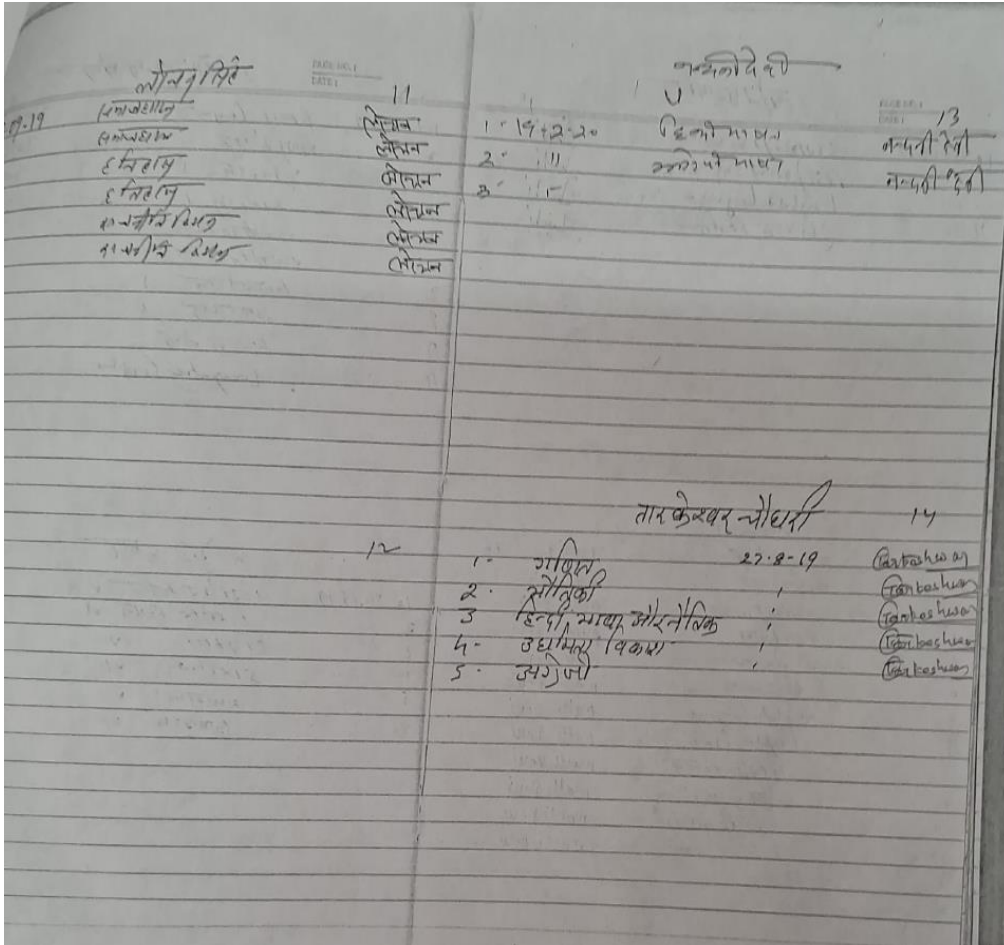 लोचन सिंह
11
09-19 समाजशास्त्र लोचन
समाजशास्त्र लोचन
इतिहास लोचन
इतिहास लोचन
राजनीति विज्ञान लोचन
राजनीति विज्ञान लोचन
12
नन्दनी देवी
13
1- 19-2-20 हिन्दी भाषा नन्दनी देवी
2- " अंग्रेजी भाषा नन्दनी देवी
3-
तारकेश्वर चौधरी 14
1- गणित 27-8-19 Tarkeshwar
2- भौतिकी Tarkeshwar
3 हिन्दी, भाषा और नैतिक Tarkeshwar
4- उद्यमिता विकास Tarkeshwar
5- अंग्रेजी Tarkeshwar